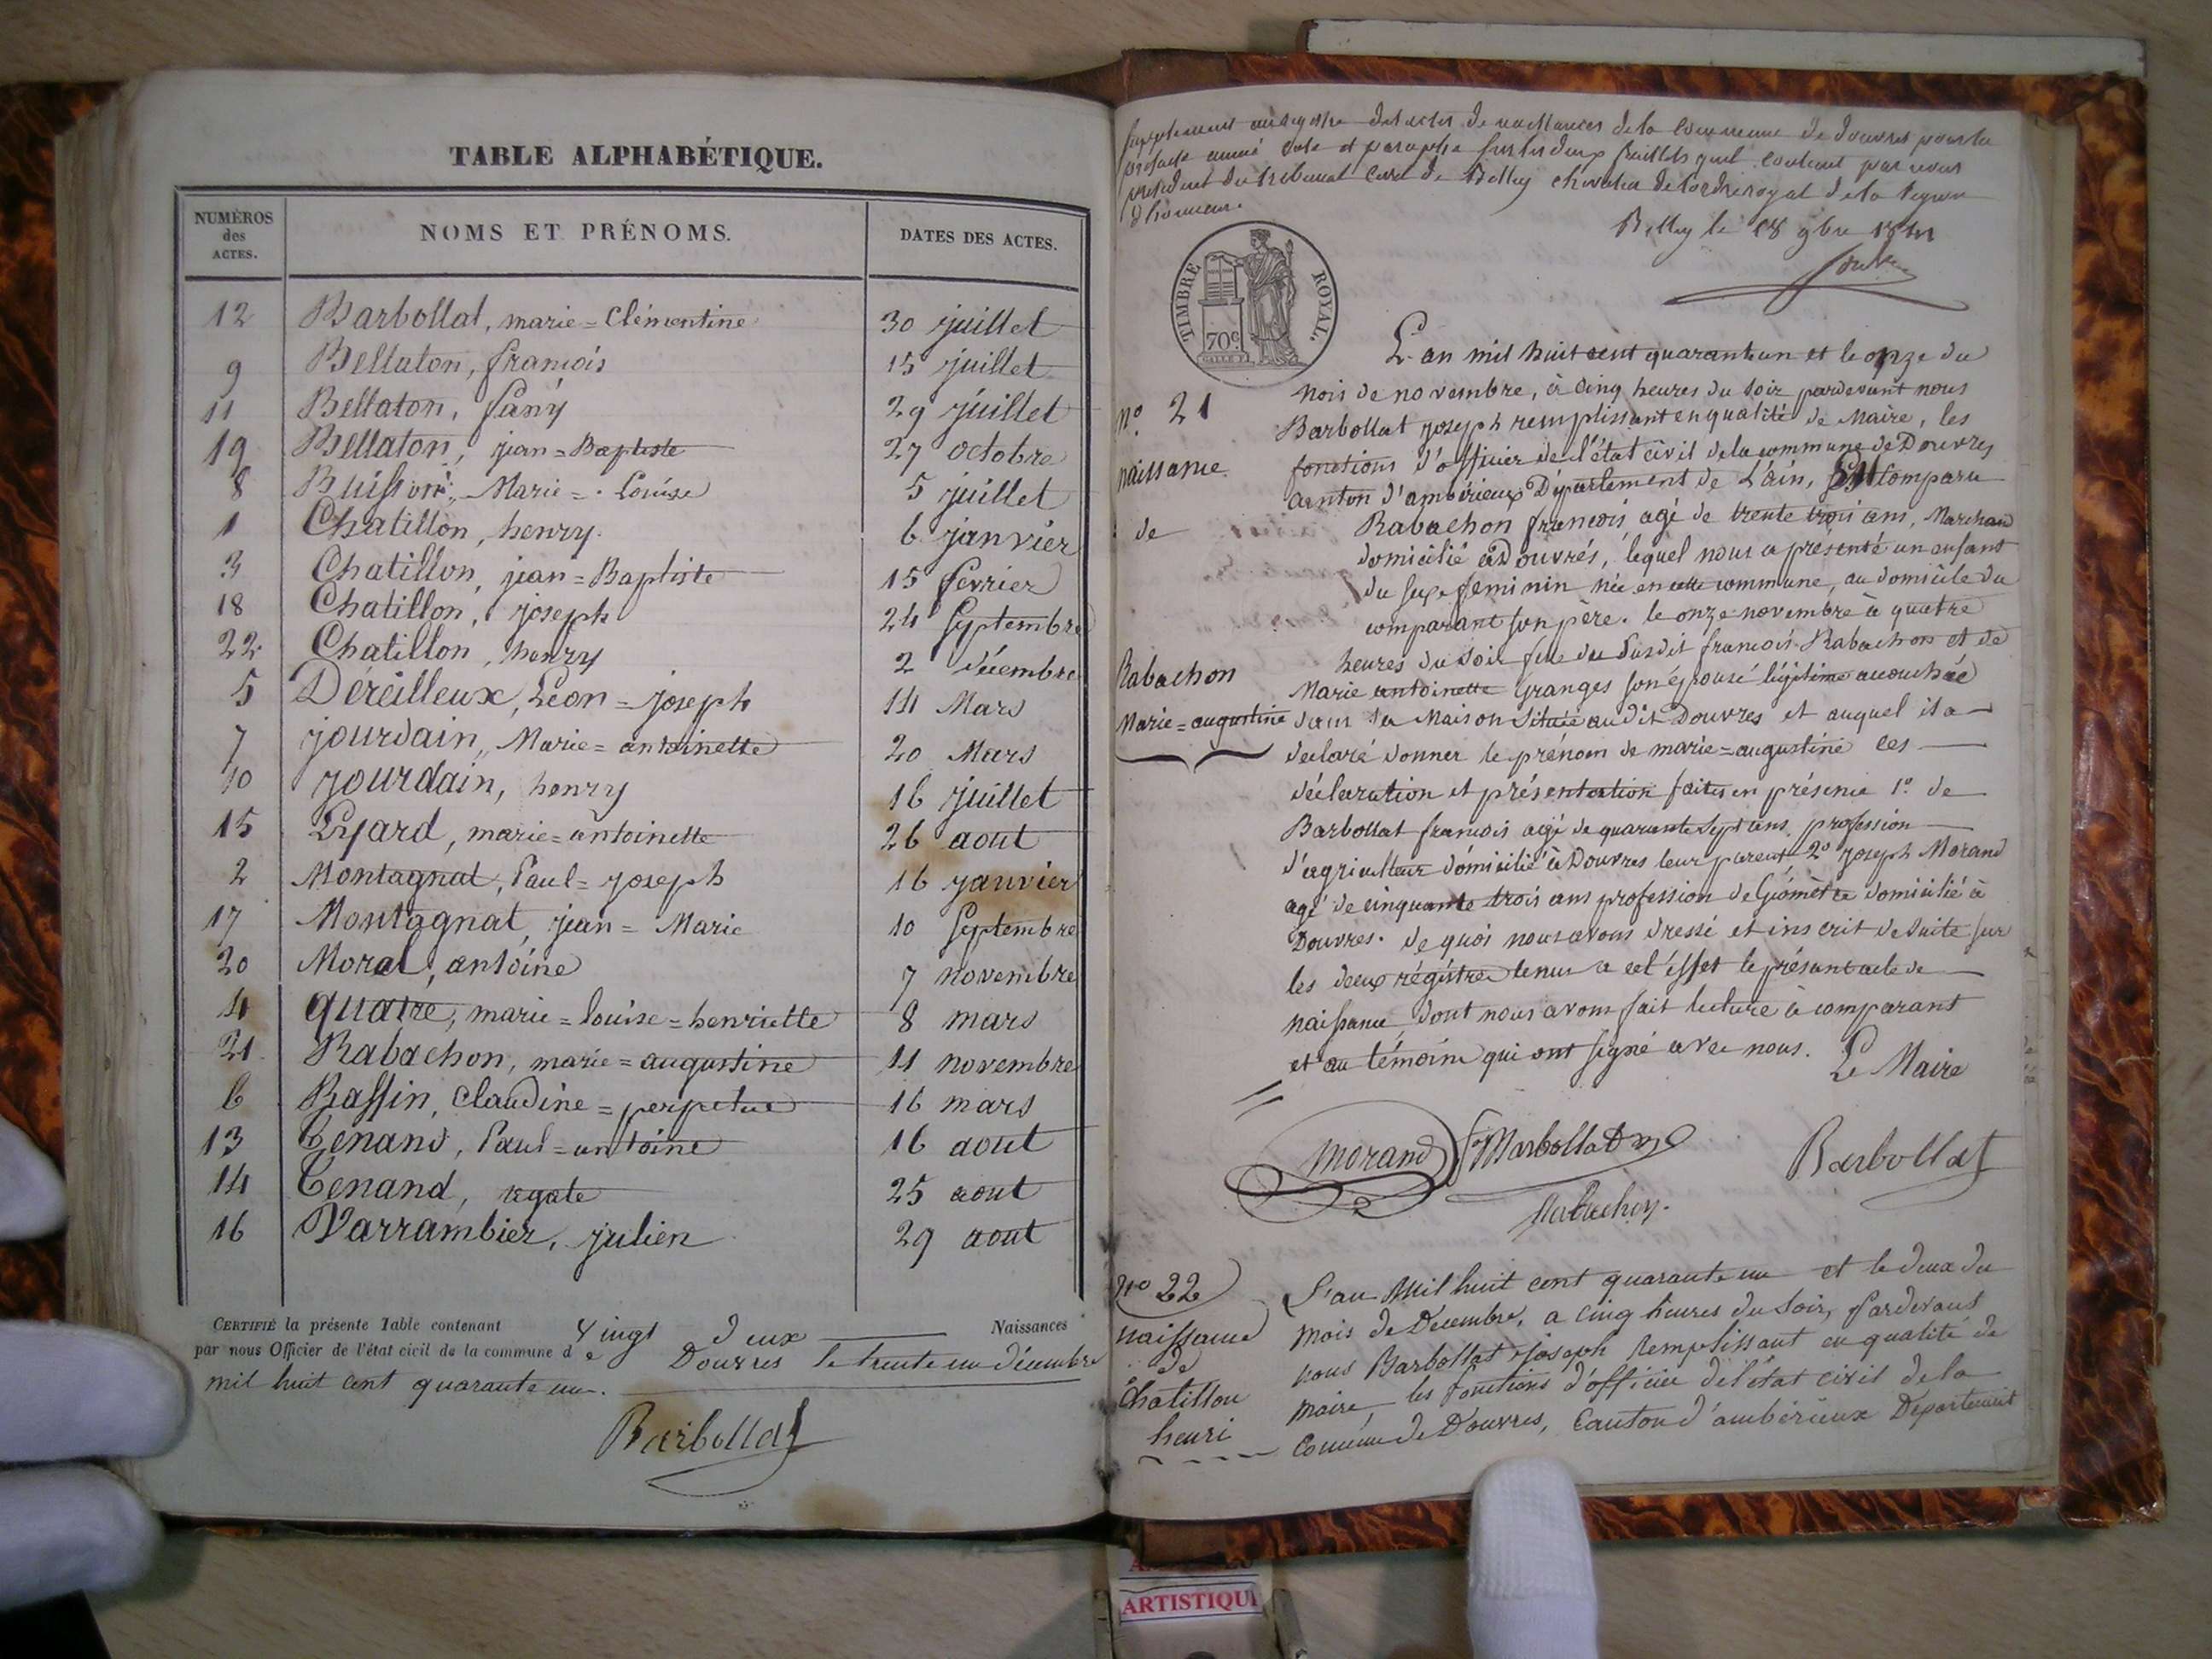 TABLE ALPHABÉTIQUE.
NUMÉROS des ACTES. NOMS ET PRÉNOMS. DATES DES ACTES.
12 Barbollat, marie=Clémentine 30 juillet
9 Bellaton, francois 15 juillet
11 Bellaton, fany 29 juillet
19 Bellaton, jean=Baptiste 27 octobre
8 Buisson, Marie=Louise 5 juillet
1 Chatillon, henry. 6 janvier
3 Chatillon, jean=Baptiste 15 fevrier
18 Chatillon, joseph 24 Septembre
22 Chatillon, henry 2 décembre
5 Déreilleux, Léon=joseph 14 Mars
7 jourdain, Marie=antoinette 20 Mars
10 jourdain, henry 16 juillet
15 Lyard, marie=antoinette 26 aout
2 Montagnat, Paul=joseph 16 janvier
17 Montagnat, jean=Marie 10 Septembre
20 Moral, antoine 7 novembre
4 quatre, marie=louise=henriette 8 mars
21 Rabachon, marie=augustine 11 novembre
6 Rassin, Claudine=perpetue 16 mars
13 Tenand, Paul=antoine 16 aout
14 Tenand, agate 25 aout
16 Varrambier, julien 29 aout
CERTIFIÉ la présente Table contenant Vingt deux Naissances
par nous Officier de l'état civil de la commune de Douvres le trente un décembre
mil huit cent quarante un.
Barbollat
Supplement au registre des actes de naissances de la commune de douvres pour la
présente année coté et paraphé sur les deux feuillets quil contient par nous
président du tribunal civil de Belley chevalier de l'ordre royal de la legion
d'honneur.
Belley le 28 9bre 1841
TIMBRE ROYAL.
70c
L'an mil huit cent quarante un et le onze du
mois de novembre, à cinq heures du soir pardevant nous
No. 21 Barbollat joseph remplissant en qualité de Maire, les
fonctions d'officier de l'état civil de la commune de Douvres
naissance canton d'ambérieux Département de L'ain, Est Comparu
de Rabachon francois agé de trente trois ans, Marchand
domicilié à Douvrés, lequel nous a présenté un enfant
du sexe feminin née en cette commune, au domicile du
comparant son père. le onze novembre à quatre
heures du soir fille du Susdit francois Rabachon et de
Rabachon Marie antoinette Granges son épousé légitime accouchée
Marie=augustine dans sa Maison située audit Douvres et auquel il a
declaré donner le prénom de marie=augustine les
déclaration et présentation faites en présence 1o. de
Barbollat francois agé de quarante sept ans, profession
d'agriculteur domicilié à Douvres leur parent 2o joseph Morand
agé de cinquante trois ans profession de Géomètre domicilié à
Douvres. de quoi nous avons dressé et inscrit de suite sur
les deux régistres tenus a cet effet le présent acte de
naissance dont nous avons fait lecture à comparant
et au témoins qui ont signé avec nous. Le Maire
Morand fs Barbollat Barbollat
Rabachon.
No 22 L'an Mil huit cent quarante un et le deux du
naissance mois de Décembre, a cinq heures du Soir, Pardevant
de nous Barbollat joseph Remplissant en qualité de
Chatillon maire les fonctions d'officier de l'état civil de la
henri Commune de Douvres, Canton d'ambérieux Département
ARTISTIQU